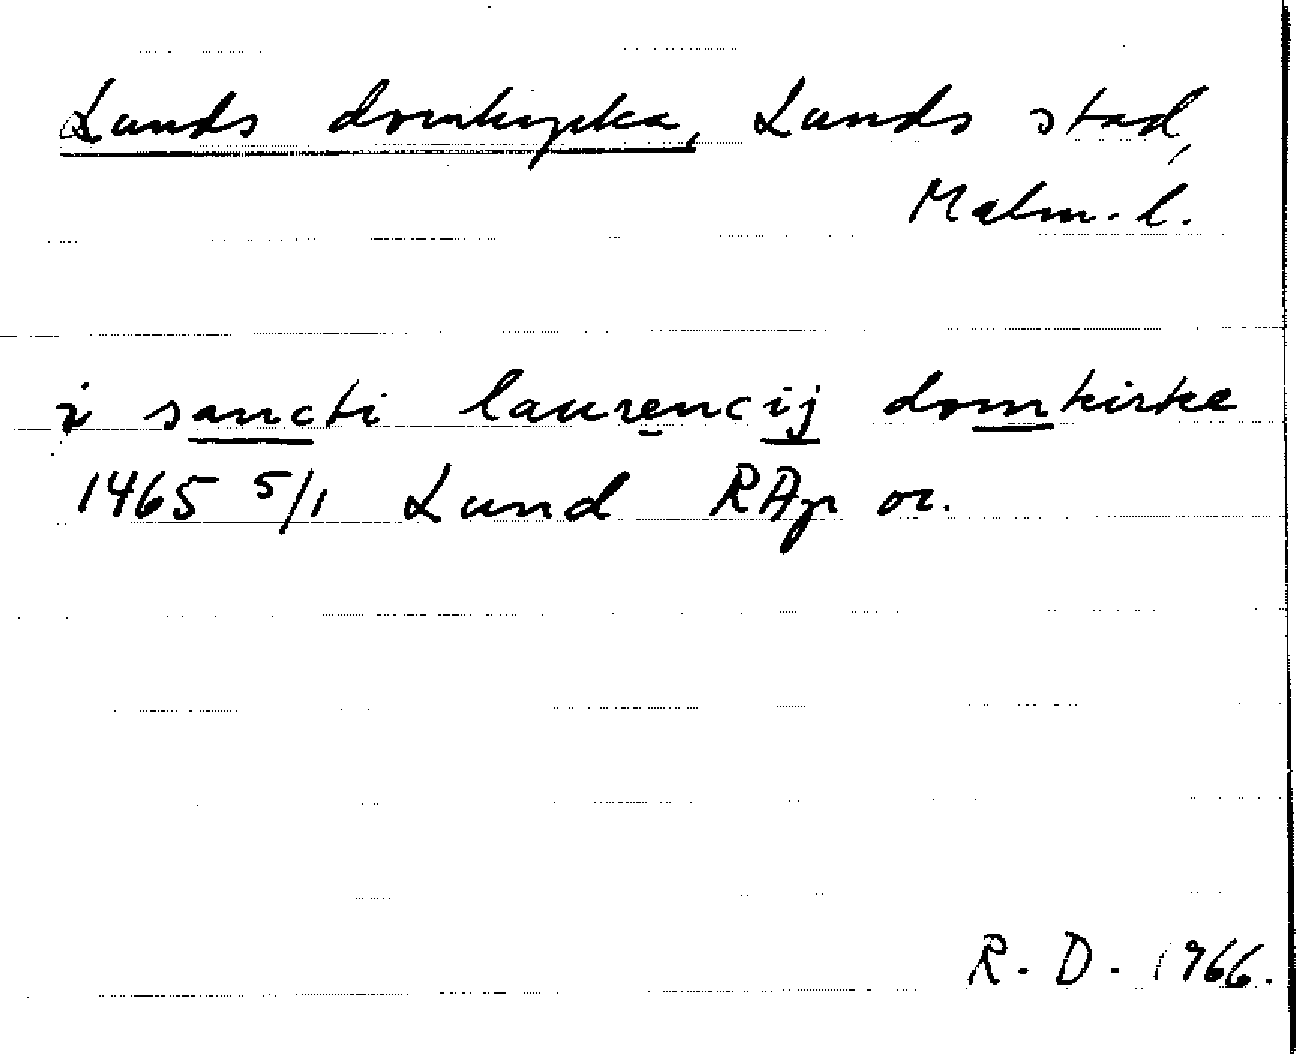 Lunds domkyrka, Lunds stad,
Malm. l.
i sancti laurencij domkirke
1465 5/1 Lund RAp or.
R. D. 1966.